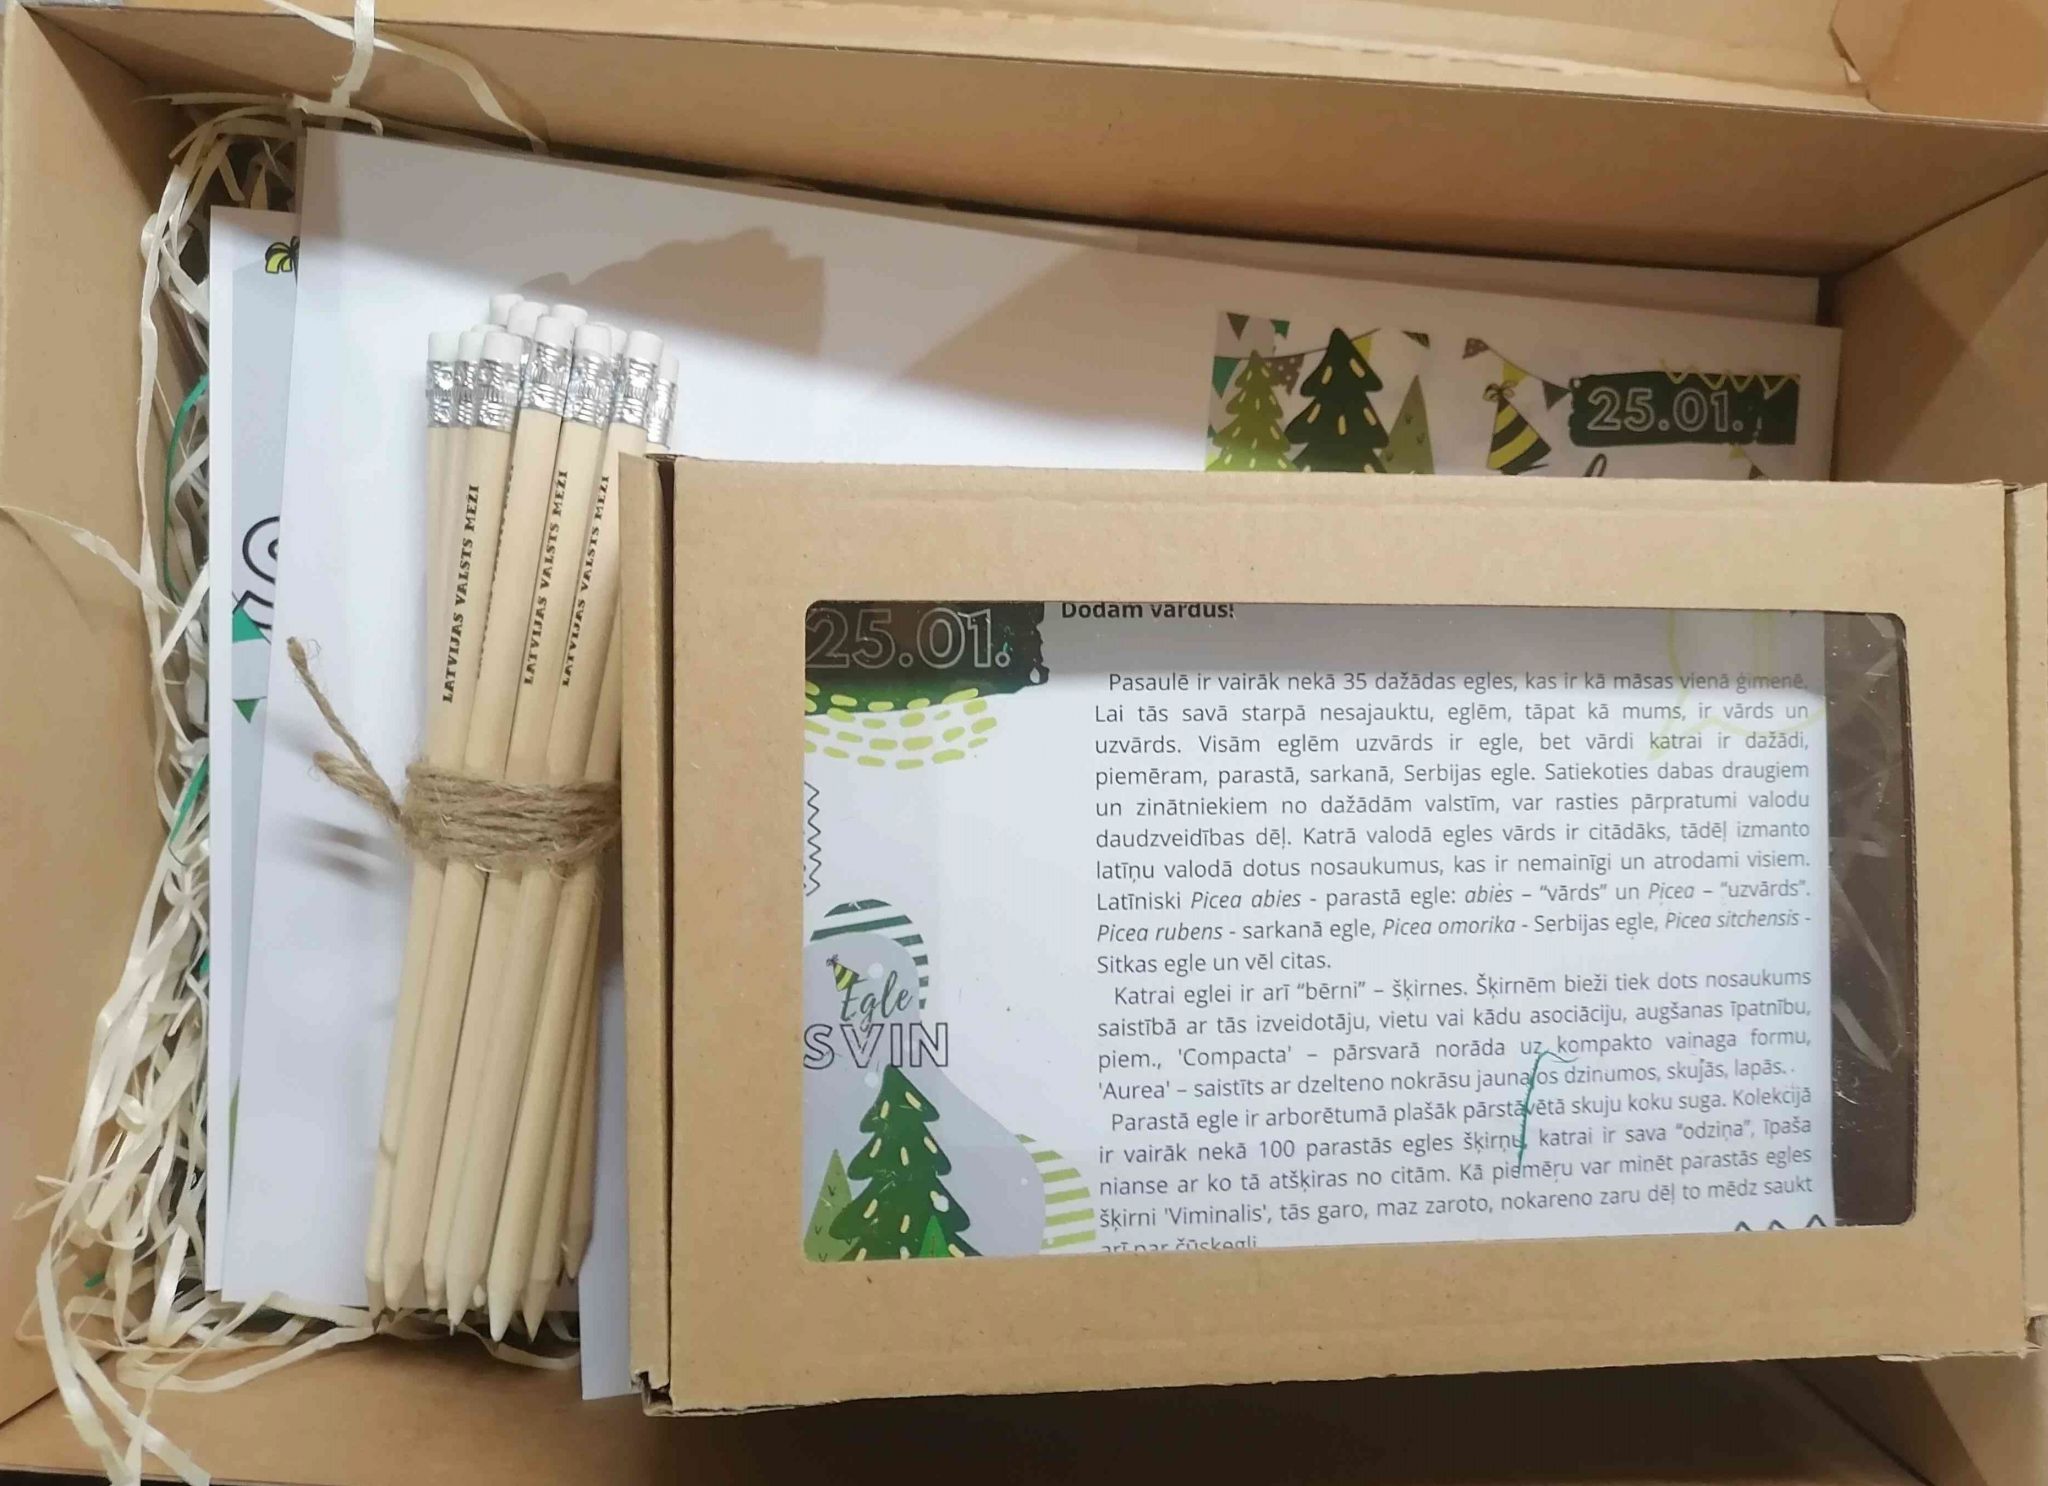 25.01.
LATVIJAS VALSTS MEŽI
LATVIJAS VALSTS MEŽI
LATVIJAS VALSTS MEŽI
25.01.
Dodam vārdus!
Pasaulē ir vairāk nekā 35 dažādas egles, kas ir kā māsas vienā ģimenē.
Lai tās savā starpā nesajauktu, eglēm, tāpat kā mums, ir vārds un
uzvārds. Visām eglēm uzvārds ir egle, bet vārdi katrai ir dažādi,
piemēram, parastā, sarkanā, Serbijas egle. Satiekoties dabas draugiem
un zinātniekiem no dažādām valstīm, var rasties pārpratumi valodu
daudzveidības dēļ. Katrā valodā egles vārds ir citādāks, tādēļ izmanto
latīņu valodā dotus nosaukumus, kas ir nemainīgi un atrodami visiem.
Latīniski Picea abies - parastā egle: abies – “vārds” un Picea – “uzvārds”.
Picea rubens - sarkanā egle, Picea omorika - Serbijas egle, Picea sitchensis -
Sitkas egle un vēl citas.
Katrai eglei ir arī “bērni” – šķirnes. Šķirnēm bieži tiek dots nosaukums
saistībā ar tās izveidotāju, vietu vai kādu asociāciju, augšanas īpatnību,
piem., 'Compacta' – pārsvarā norāda uz kompakto vainaga formu,
'Aurea' – saistīts ar dzelteno nokrāsu jaunajos dzinumos, skujās, lapās..
Parastā egle ir arborētumā plašāk pārstāvētā skuju koku suga. Kolekcijā
ir vairāk nekā 100 parastās egles šķirņu, katrai ir sava “odziņa”, īpaša
nianse ar ko tā atšķiras no citām. Kā piemēru var minēt parastās egles
šķirni 'Viminalis', tās garo, maz zaroto, nokareno zaru dēļ to mēdz saukt
arī par čūskegli
Egle
SVIN